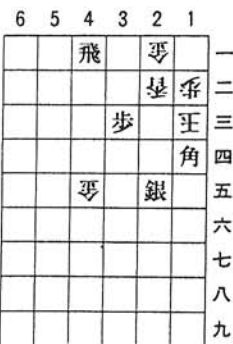 6 5 4 3 2 1
飛 金 一
香 歩 二
歩 玉 三
角 四
金 銀 五
六
七
八
九